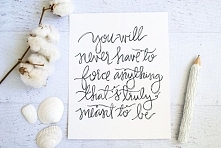 you will
never have to
force anything
that's truly
meant to be